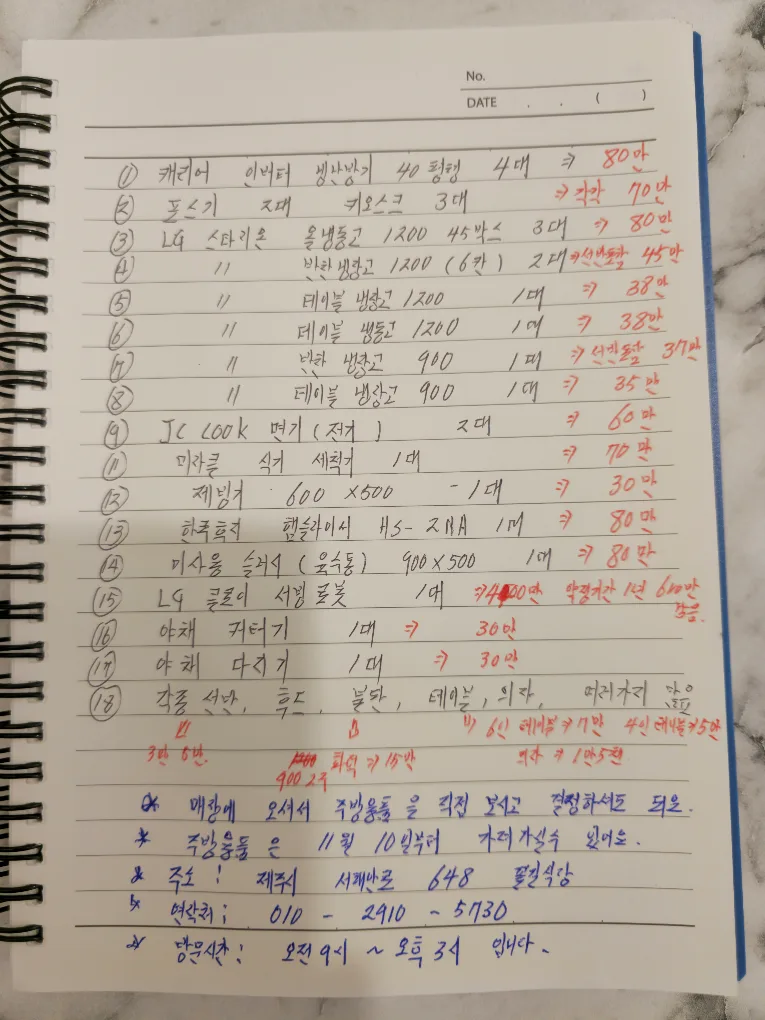 No.
DATE . . ( )
① 캐리어 인버터 냉난방기 40평형 4대 ⇒ 80만
② 포스기 2대 키오스크 3대 ⇒ 각각 70만
③ LG 스타리온 올냉동고 1200 45박스 3대 ⇒ 80만
④ 〃 반찬냉장고 1200 (6칸) 2대 ⇒ 선반포함 45만
⑤ 〃 테이블 냉장고 1200 1대 ⇒ 38만
⑥ 〃 테이블 냉동고 1200 1대 ⇒ 38만
⑦ 〃 반찬 냉장고 900 1대 ⇒ 선반포함 37만
⑧ 〃 테이블 냉장고 900 1대 ⇒ 35만
⑨ JC COOK 면기 (전기) 2대 ⇒ 60만
⑪ 미라클 식기 세척기 1대 ⇒ 70만
⑫ 제빙기 600 ×500 - 1대 ⇒ 30만
⑬ 한국후지 햄슬라이서 HS-2NA 1대 ⇒ 80만
⑭ 미사용 슬러시 (육수통) 900×500 1대 ⇒ 80만
⑮ LG 클로이 서빙 로봇 1대 ⇒ 400만 약정기간 1년
⑯ 야채 커터기 1대 ⇒ 30만
⑰ 야채 다지기 1대 ⇒ 30만
⑱ 각종 선반, 후드, 불판, 테이블, 의자, 여러가지 많음
3만 5만 6인 테이블 ⇒ 7만 4인 테이블 ⇒ 5만
900 2구 화덕 ⇒ 15만 의자 ⇒ 1만 5천
* 매장에 오셔서 주방용품을 직접 보시고 결정하셔도 되요.
* 주방용품은 11월 10일부터 가져가실수 있어요.
* 주소 : 제주시 서해안로 648
* 연락처 : 010 - 2910 - 5730
* 방문시간 : 오전 9시 ~ 오후 3시 입니다.